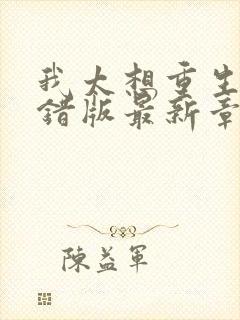 我大想重生
错版最新章
陳益軍